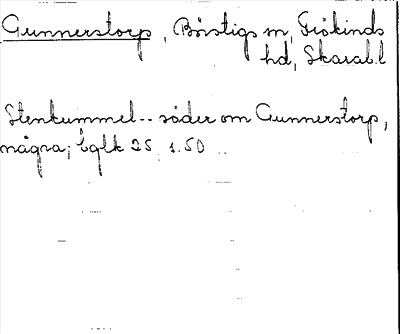 Gunnerstorp, Börstigs sn, Frökinds
hd, Skarab.l
Stenkummel-- söder om Gunnerstorp,
några; Eglk 25 1.50